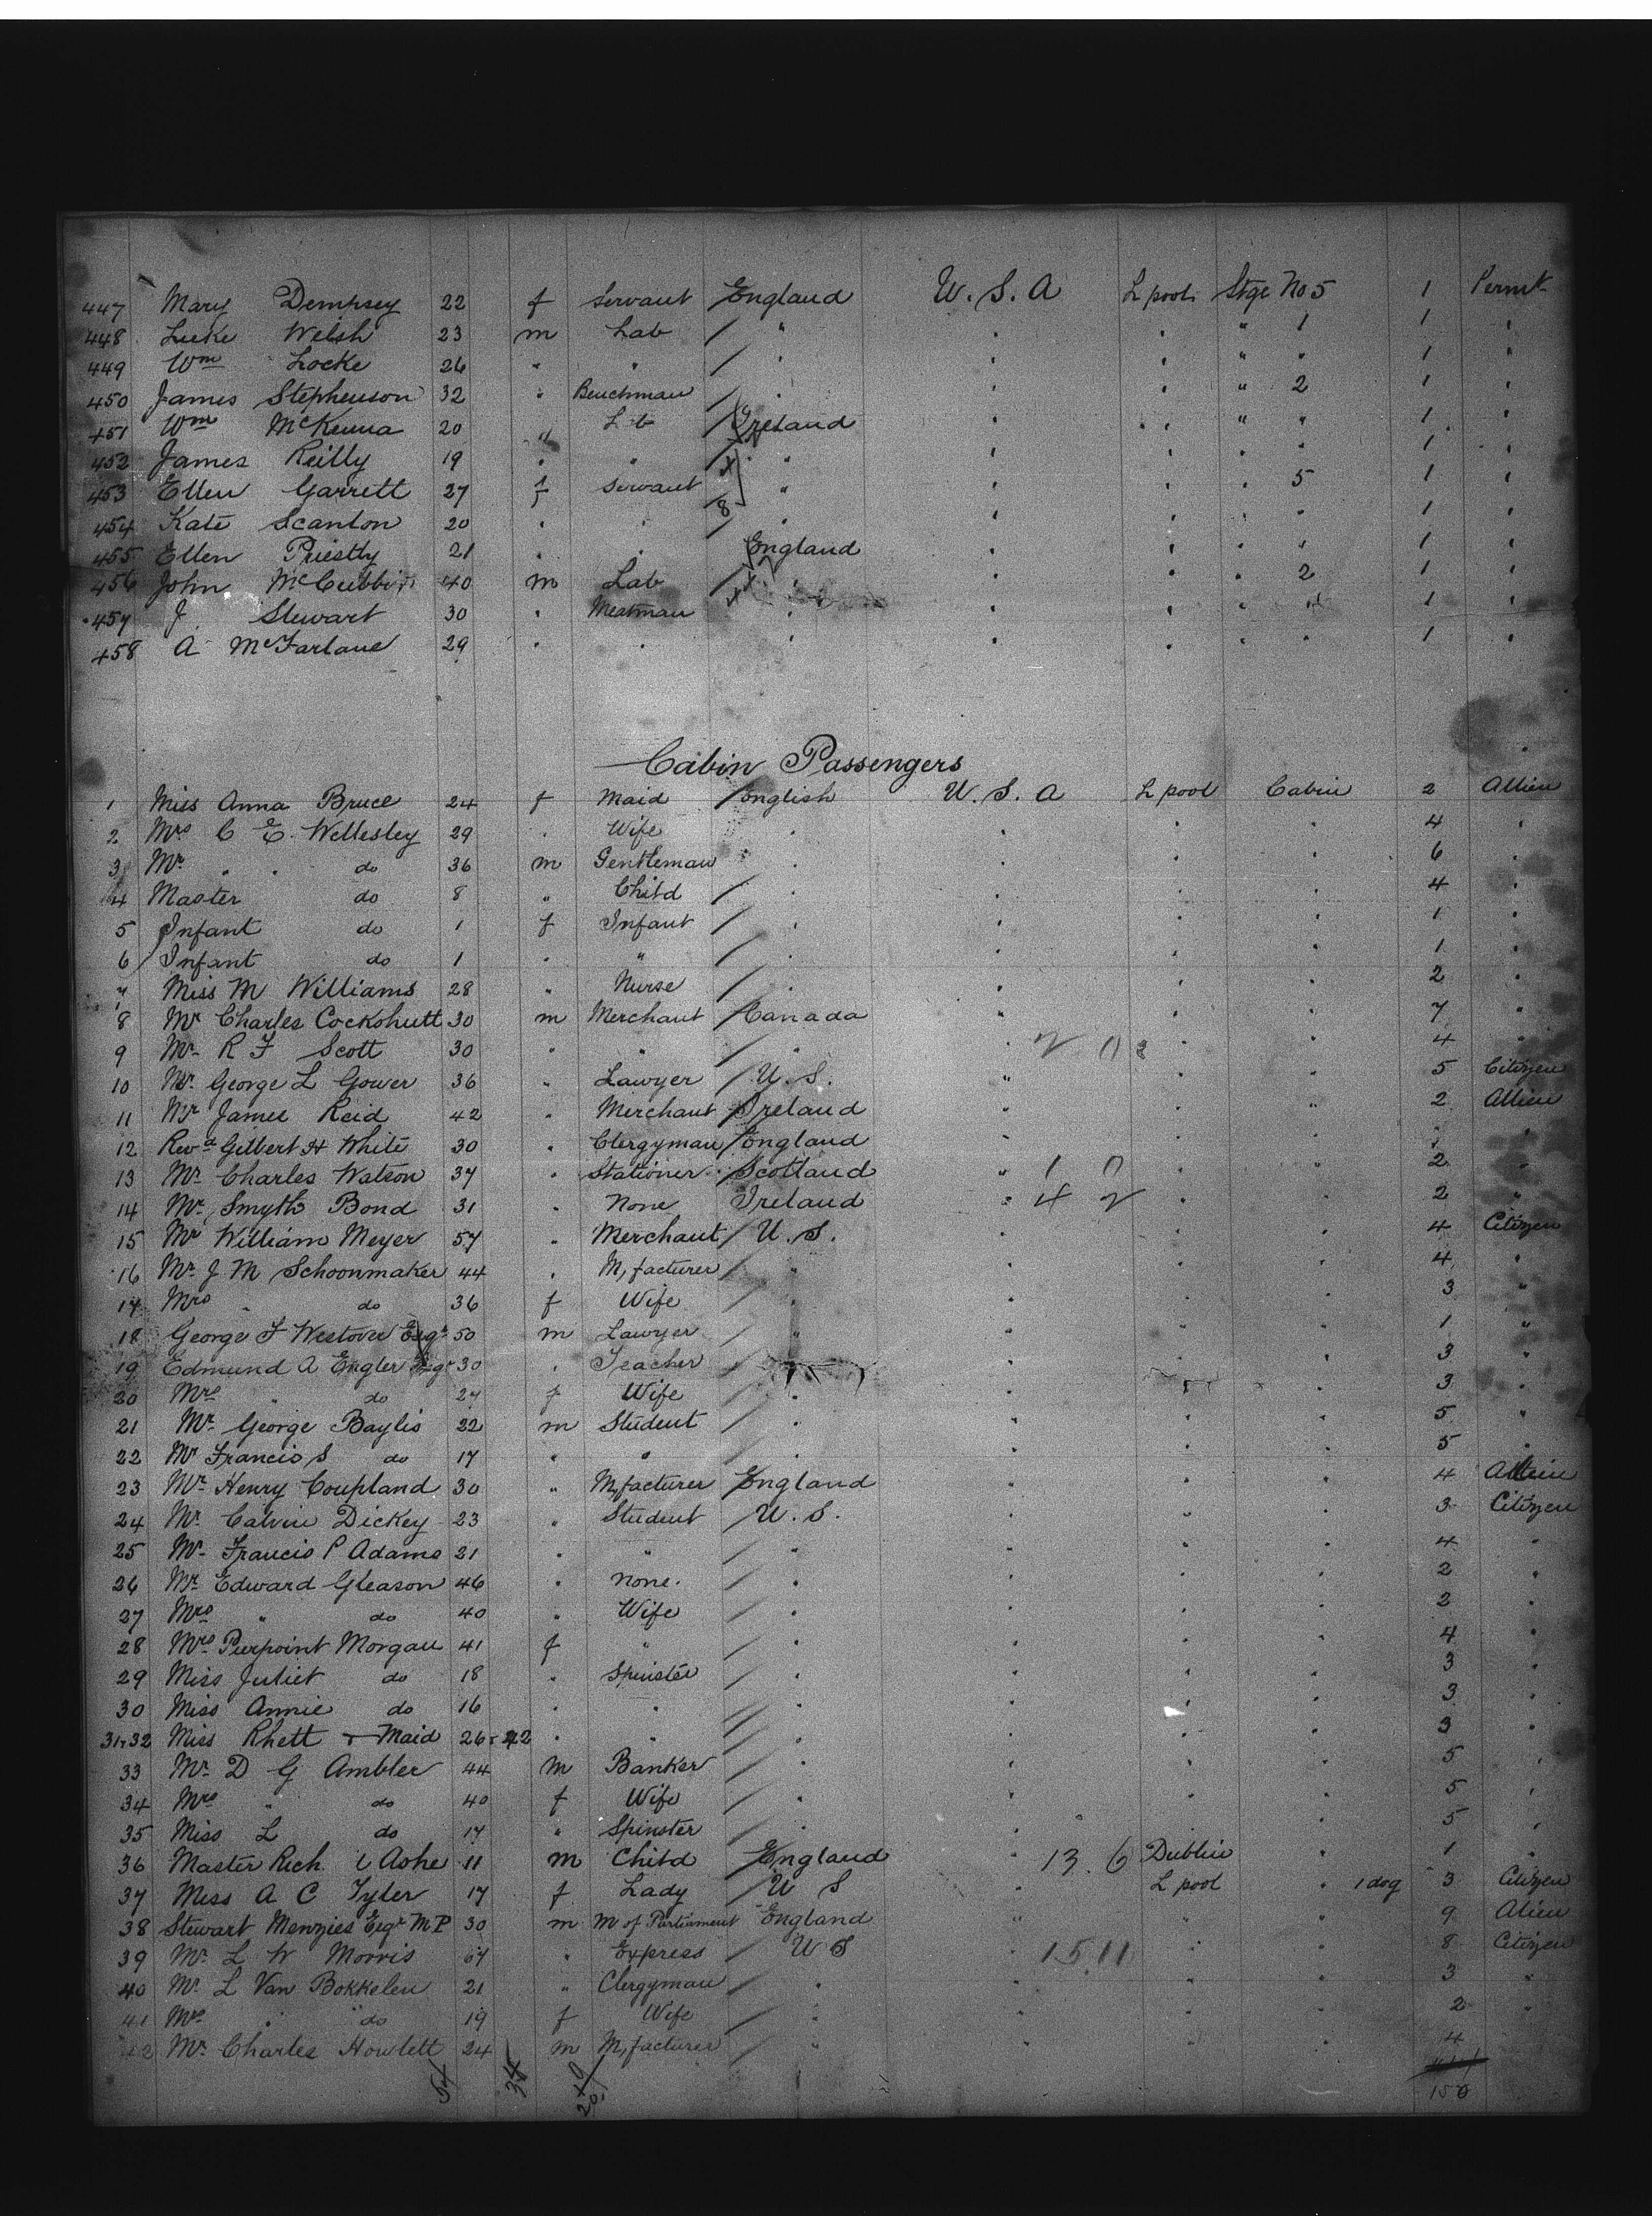 447 Mary Dempsey 22 f Servant England U.S.A L pool Stge No 5 1 Permt
448 Luke Welsh 23 m Lab / " " " " 1 1 "
449 Wm Locke 26 " " / " " " " " 1 "
450 James Stephenson 32 " Benchman / " " " " 2 1 "
451 Wm McKenna 20 " Lab / Ireland " " " " 1 "
452 James Reilly 19 " " / " " " " " 1 "
453 Ellen Garrett 27 f Servant " " " " 5 1 "
454 Kate Scanlon 20 " " / " " " " " 1 "
455 Ellen Priestly 21 " " England " " " " 1 "
456 John McCubbin 40 m Lab / " " " " 2 1 "
457 J. Stewart 30 " Meatman " " " " " 1 "
458 A McFarlane 29 " " " " " " " 1 "
Cabin Passengers
1 Miss Anna Bruce 24 f Maid / English U.S.A L pool Cabin 2 Allien
2 Mrs C E. Wellesley 29 " Wife " " " " 4 "
3 Mr " " do 36 m Gentleman " " " " 6 "
4 Master do 8 " Child / " " " " 4 "
5 Infant do 1 f Infant / " " " " 1 "
6 Infant do 1 " " / " " " " 1 "
7 Miss M Williams 28 " Nurse / " " " " 2 "
8 Mr Charles Cockshutt 30 m Merchant / Canada " " " 7 "
9 Mr R F Scott 30 " " / " " " 4 "
10 Mr. George L Gower 36 " Lawyer / U.S. " " " 5 Citizen
11 Mr James Reid 42 " Merchant / Ireland " " " 2 Allien
12 Revd Gilbert H White 30 " Clergyman / England " " " "
13 Mr. Charles Watson 37 " Stationer Scotland " 1 0 " " 2 "
14 Mr. Smyth Bond 31 " None Ireland " 4 2 " " 2 "
15 Mr William Meyer 57 " Merchant / U.S. " " " 4 Citizen
16 Mr. J M Schoonmaker 44 " M,facturer / " " " " 4 "
17 Mrs " do 36 f Wife / " " " " 3 "
18 George F Westover Esqr 50 m Lawyer / " " " " 1 "
19 Edmund A Engler Esqr 30 " Teacher / " " " " 3 "
20 Mrs " do 27 f Wife / " " " " 3 "
21 Mr. George Baylis 22 m Student / " " " " 5 "
22 Mr Francis S do 17 " " / " " " " 5 "
23 Mr. Henry Coupland 30 " M,facturer / England " " " 4 Allien
24 Mr. Calvin Dickey 23 " Student / U.S. " " " 3 Citizen
25 Mr. Francis P Adams 21 " " / " " " " 4 "
26 Mr. Edward Gleason 46 " none. / " " " " 2 "
27 Mrs " do 40 " Wife / " " " " 2 "
28 Mrs Pierpoint Morgan 41 f " / " " " " 4 "
29 Miss Juliet do 18 " Spinster / " " " " 3 "
30 Miss Annie do 16 " " / " " " " 3 "
31+32 Miss Rhett + Maid 26 + 22 " " // " " " " 3 "
33 Mr. D G Ambler 44 m Banker / " " " " 5 "
34 Mrs " do 40 f Wife / " " " " 5 "
35 Miss L do 17 " Spinster / " " " " 5 "
36 Master Rich. C Ashe 11 m Child England 13. 6 Dublin " 1 "
37 Miss A C Tyler 17 f Lady / U S " L pool " 1 dog 3 Citizen
38 Stewart Menzies Esqr M.P 30 m M of Parliament England " " " 9 Alien
39 Mr. L W Morris " Express / U S " 15.11 " " 8 Citizen
40 Mr. L Van Bokkelen 21 " Clergyman / " " " " 3 "
41 Mrs " do 19 f Wife / " " " " 2 "
42 Mr. Charles Howlett 24 m M,facturer / " " " " 4
150